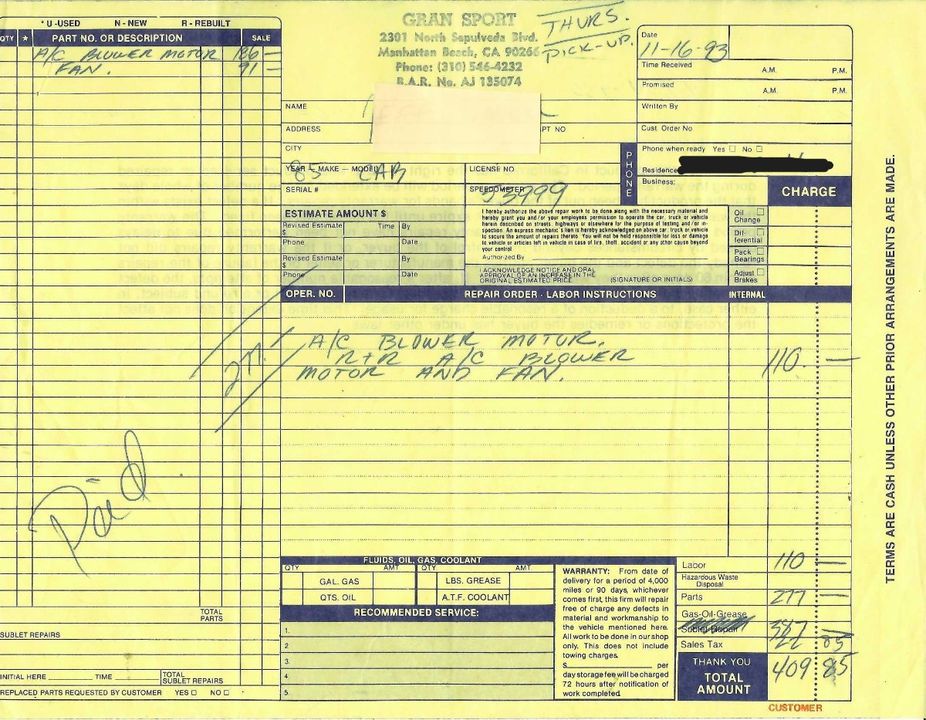 * U -USED N - NEW R - REBUILT
QTY * PART NO. OR DESCRIPTION SALE
A/C BLOWER MOTOR 186 —
FAN. 91 —
GRAN SPORT
2301 North Sepulveda Blvd.
Manhattan Beach, CA 90266
Phone: (310) 546-4232
B.A.R. No. AJ 135074
THURS.
PICK-UP.
Date
11-16-93
Time Received A.M. P.M.
Promised A.M. P.M.
Written By
Cust. Order No
Phone when ready Yes □ No □
PHONE
Residence
Business:
NAME
ADDRESS PT NO
CITY
YEAR — MAKE — MODEL LICENSE NO
85 CAB
SERIAL # SPEEDOMETER
53999
CHARGE
ESTIMATE AMOUNT $
Revised Estimate Time By
$
Phone Date
Revised Estimate By
$
Phone Date
I hereby authorize the above repair work to be done along with the necessary material and
hereby grant you and/or your employees permission to operate the car, truck or vehicle
herein described on streets, highways or elsewhere for the purpose of testing and/or in-
spection. An express mechanic's lien is hereby acknowledged on above car, truck or vehicle
to secure the amount of repairs thereto. You will not be held responsible for loss or damage
to vehicle or articles left in vehicle in case of fire, theft, accident or any other cause beyond
your control.
Authorized By
I ACKNOWLEDGE NOTICE AND ORAL
APPROVAL OF AN INCREASE IN THE
ORIGINAL ESTIMATED PRICE. (SIGNATURE OR INITIALS)
Oil □
Change
Dif- □
ferential
Pack □
Bearings
Adjust □
Brakes
OPER. NO. REPAIR ORDER - LABOR INSTRUCTIONS INTERNAL
A/C BLOWER MOTOR.
R+R A/C BLOWER 110. —
MOTOR AND FAN.
277.
Paid
FLUIDS, OIL, GAS, COOLANT
QTY AMT QTY AMT
GAL. GAS LBS. GREASE
QTS. OIL A.T.F. COOLANT
RECOMMENDED SERVICE:
1.
2
3.
4.
5.
WARRANTY: From date of
delivery for a period of 4,000
miles or 90 days, whichever
comes first, this firm will repair
free of charge any defects in
material and workmanship to
the vehicle mentioned here.
All work to be done in our shop
only. This does not include
towing charges.
$ per
day storage fee will be charged
72 hours after notification of
work completed.
Labor 110 —
Hazardous Waste
Disposal
Parts 277 —
Gas-Oil-Grease
387 —
Sales Tax 22 85
THANK YOU
TOTAL
AMOUNT
409 85
CUSTOMER
TOTAL
PARTS
SUBLET REPAIRS
INITIAL HERE TIME TOTAL
SUBLET REPAIRS
REPLACED PARTS REQUESTED BY CUSTOMER YES □ NO □
TERMS ARE CASH UNLESS OTHER PRIOR ARRANGEMENTS ARE MADE.